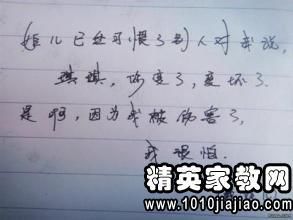 姐儿已经习惯了别人对我说，
琪琪，你变了，变坏了。
是啊，因为我被伤害了，
我很怕.
精英家教网
www.1010jiajiao.com